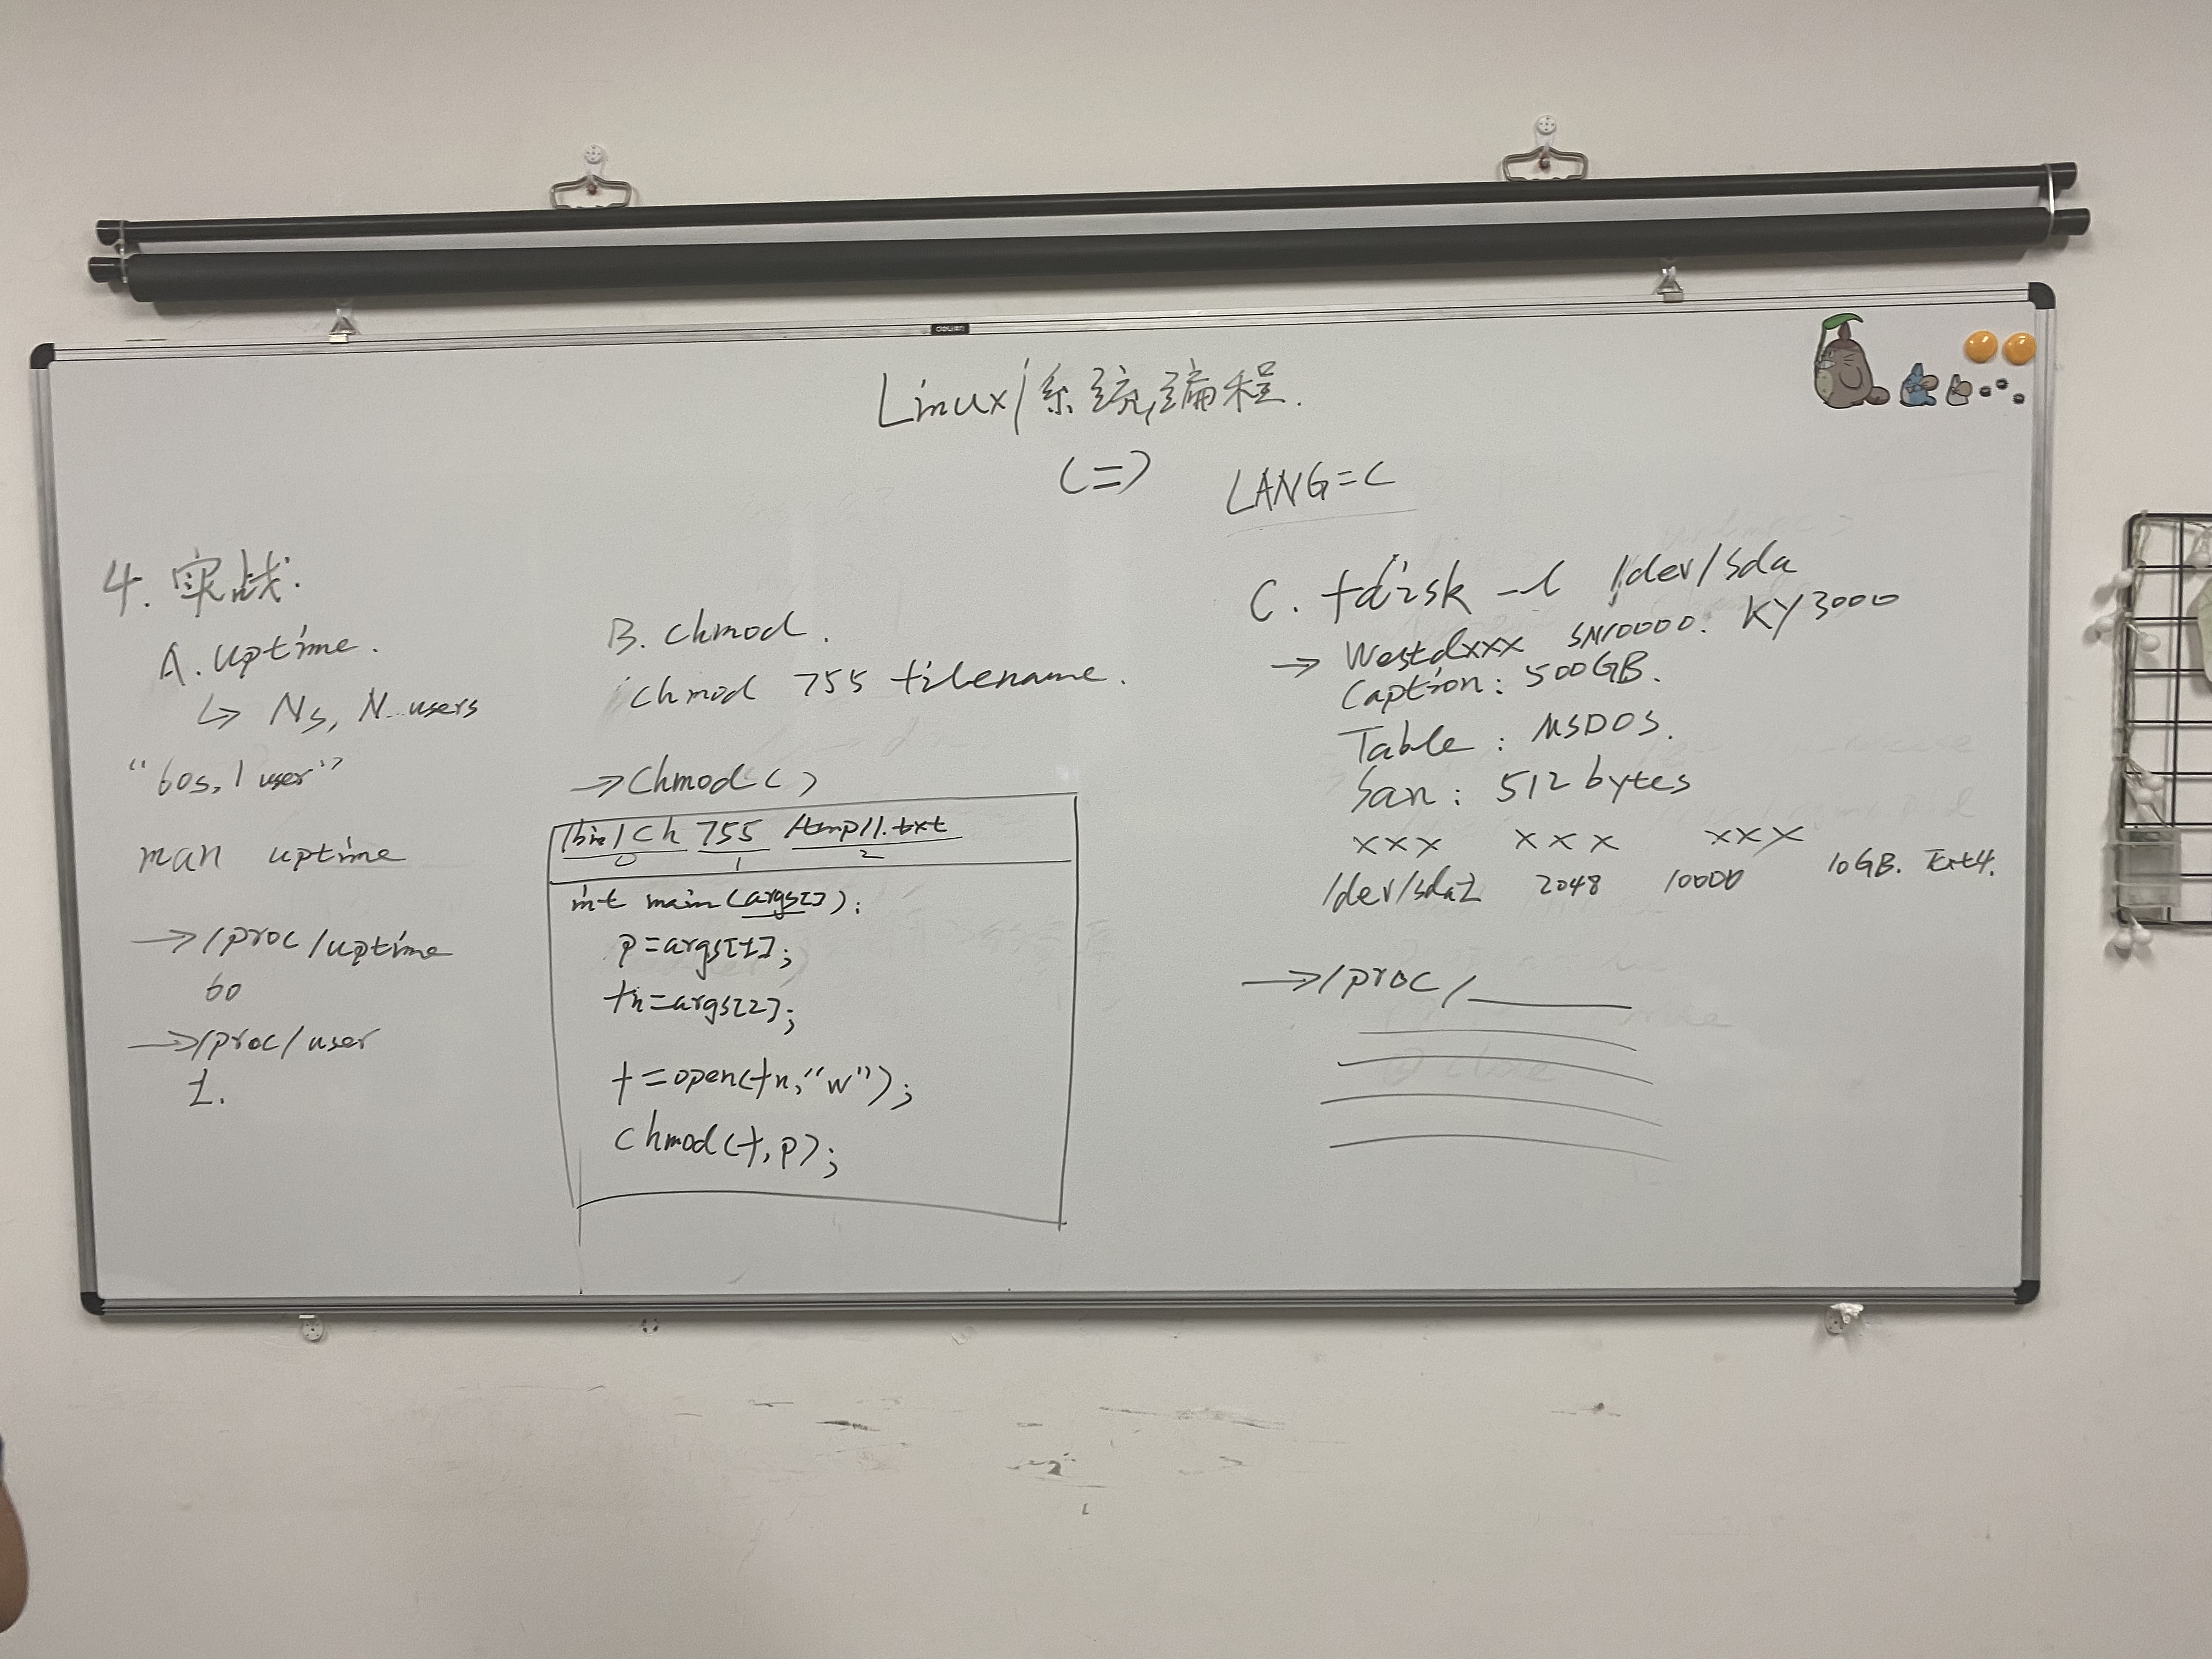 deli
Linux系统编程.
(二)
LANG=C
4. 实战.
A. uptime.
↳ Ns, N users
"60s, 1 user"
man uptime
→/proc/uptime
60
→/proc/user
1.
B. chmod.
chmod 755 filename.
→chmod()
/bin/ch 755 /tmp/1.txt
0 1 2
int main(args[]):
p=args[1];
fn=args[2];
f=open(fn,"w");
chmod(f,p);
C. fdisk -l /dev/sda
→ Westdxxx SN10000. KY3000
Caption: 500GB.
Table: MSDOS.
San: 512 bytes
xxx xxx xxx
/dev/sda1 2048 10000 10GB. Ext4.
→/proc/